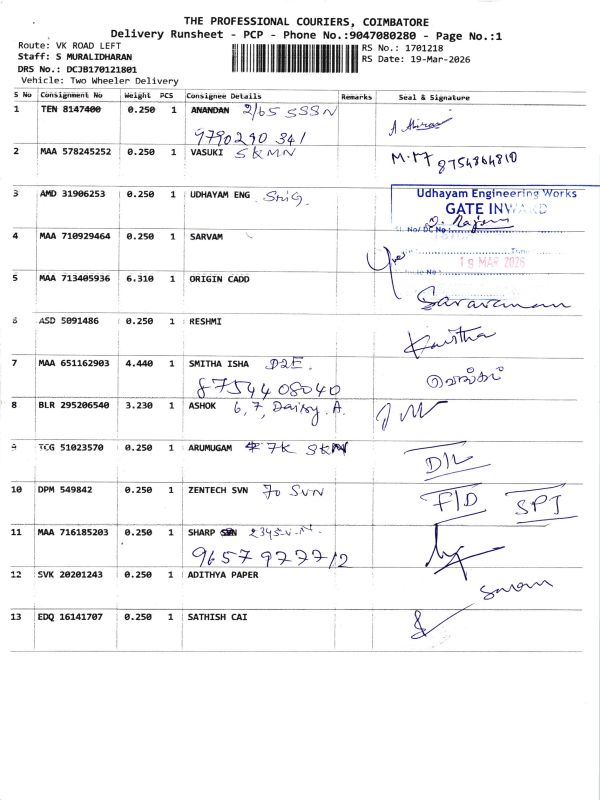 THE PROFESSIONAL COURIERS, COIMBATORE
Delivery Runsheet - PCP - Phone No.:9047080280 - Page No.:1
Route: VK ROAD LEFT
Staff: S MURALIDHARAN
DRS No.: DCJB170121801
Vehicle: Two Wheeler Delivery
RS No.: 1701218
RS Date: 19-Mar-2026
S No Consignment No Weight PCS Consignee Details Remarks Seal & Signature
1 TEN 8147400 0.250 1 ANANDAN 2/65 SSSN
9790290341
2 MAA 578245252 0.250 1 VASUKI SKMN 8754864810
3 AMD 31906253 0.250 1 UDHAYAM ENG
Udhayam Engineering Works
GATE INWARD
4 MAA 710929464 0.250 1 SARVAM
19 MAR 2026
5 MAA 713405936 6.310 1 ORIGIN CADD Saravanan
6 ASD 5091486 0.250 1 RESHMI Kavitha
7 MAA 651162903 4.440 1 SMITHA ISHA D2E.
8754408040
8 BLR 295206540 3.230 1 ASHOK 6,7, Daisy. A.
9 TCG 51023570 0.250 1 ARUMUGAM 7K SKN D/L
10 DPM 549842 0.250 1 ZENTECH SVN 70 SVN F/D SPI
11 MAA 716185203 0.250 1 SHARP
9657977712
12 SVK 20201243 0.250 1 ADITHYA PAPER
13 EDQ 16141707 0.250 1 SATHISH CAI